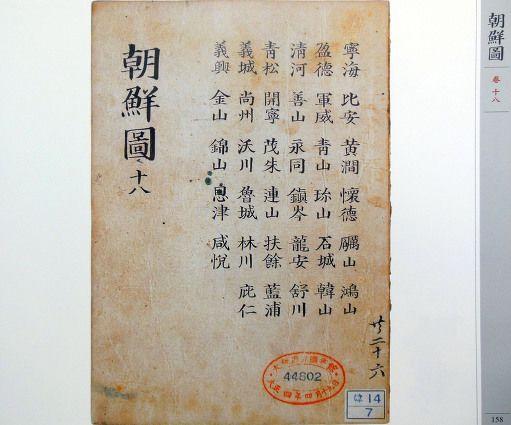 朝鮮圖
卷十八
寧海 比安 黃澗 懷德 礪山 鴻山
盈德 軍威 靑山 珍山 石城 韓山
淸河 善山 永同 鎭岑 龍安 舒川
靑松 開寧 茂朱 連山 扶餘 藍浦
義城 尙州 沃川 魯城 林川 庇仁
義興 金山 錦山 恩津 咸悅
朝鮮圖 十八
二十六
44802
大正四年四月十九日
14
7
158